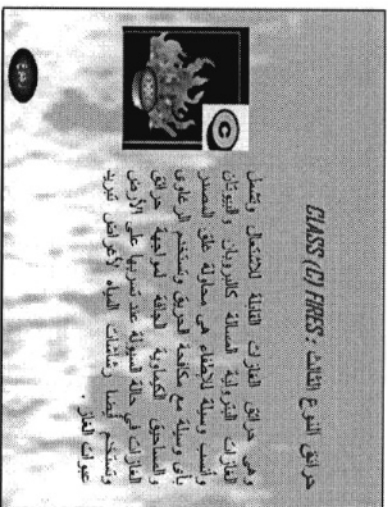 حرائق النوع الثالث : CLASS (C) FIRES
وهى حرائق الغازات القابلة للاشتعال وتشمل
الغازات البترولية المسالة كالبروبان والبيوتان
وأنسب وسيلة للاطفاء هى محاولة غلق المصدر
بأى وسيلة مع مكافحة الحريق وتستخدم الرغاوى
والمساحيق الكيماوية الجافة لمواجهة حرائق
الغازات فى حالة السيولة عند تسربها على الأرض
وتستخدم أيضا رشاشات المياه لأغراض تبريد
عبوات الغاز .
C
رجوع